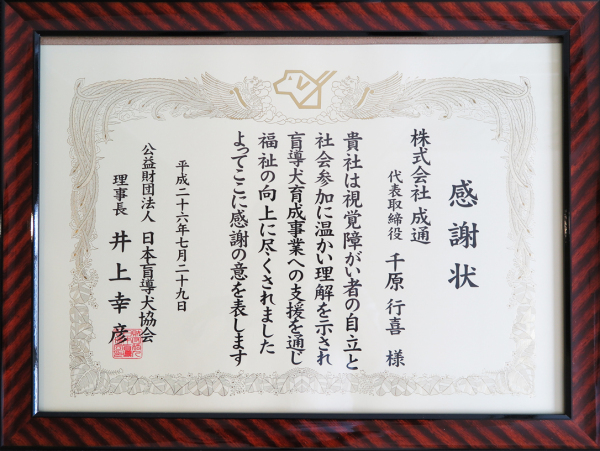 感謝状
株式会社 成通
代表取締役 千原 行喜 様
貴社は視覚障がい者の自立と
社会参加に温かい理解を示され
盲導犬育成事業への支援を通じ
福祉の向上に尽くされました
よってここに感謝の意を表します
平成二十六年七月二十九日
公益財団法人 日本盲導犬協会
理事長 井上幸彦